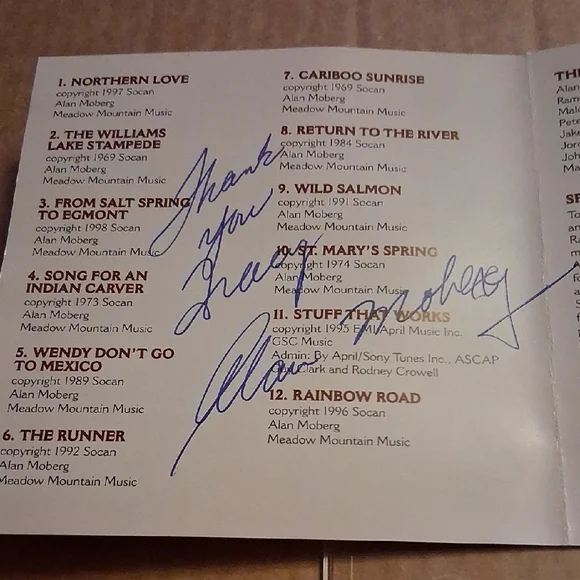 1. NORTHERN LOVE
copyright 1997 Socan
Alan Moberg
Meadow Mountain Music
2. THE WILLIAMS
LAKE STAMPEDE
copyright 1969 Socan
Alan Moberg
Meadow Mountain Music
3. FROM SALT SPRING
TO EGMONT
copyright 1998 Socan
Alan Moberg
Meadow Mountain Music
4. SONG FOR AN
INDIAN CARVER
copyright 1973 Socan
Alan Moberg
Meadow Mountain Music
5. WENDY DON'T GO
TO MEXICO
copyright 1989 Socan
Alan Moberg
Meadow Mountain Music
6. THE RUNNER
copyright 1992 Socan
Alan Moberg
Meadow Mountain Music
7. CARIBOO SUNRISE
copyright 1969 Socan
Alan Moberg
Meadow Mountain Music
8. RETURN TO THE RIVER
copyright 1984 Socan
Alan Moberg
Meadow Mountain Music
9. WILD SALMON
copyright 1991 Socan
Alan Moberg
Meadow Mountain Music
10. ST. MARY'S SPRING
copyright 1974 Socan
Alan Moberg
Meadow Mountain Music
11. STUFF THAT WORKS
copyright 1995 EMI/April Music Inc.
GSC Music
Admin: By April/Sony Tunes Inc., ASCAP
Guy Clark and Rodney Crowell
12. RAINBOW ROAD
copyright 1996 Socan
Alan Moberg
Meadow Mountain Music
Thank
you
Tracy
Alan Moberg